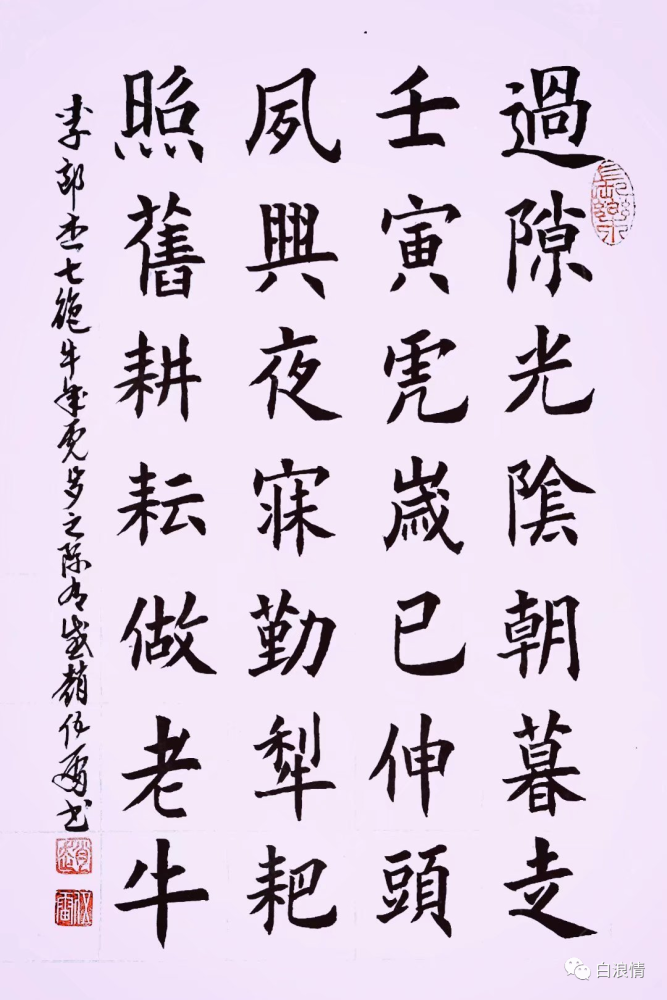 過隙光陰朝暮走
壬寅虎歲已伸頭
夙興夜寐勤犁耙
照舊耕耘做老牛
李杰七絕牛年虎歲之際有感趙伍書
白浪情